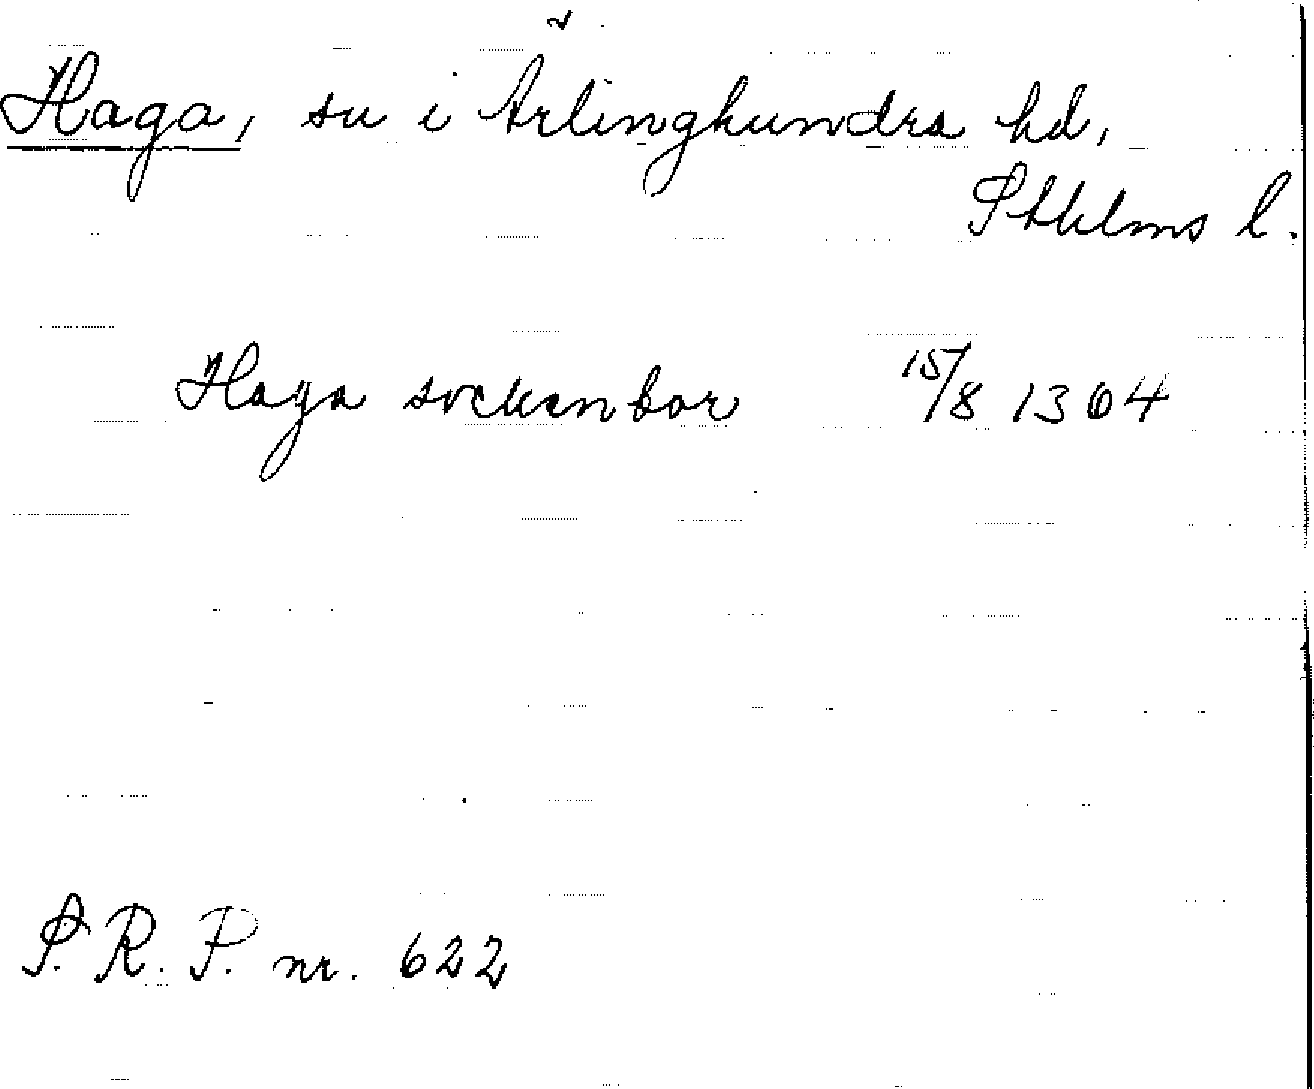 Haga, sn i Ärlinghundra hd,
Sthlms l.
Haga sockenbor 15/8 1364
S. R. P. nr. 622